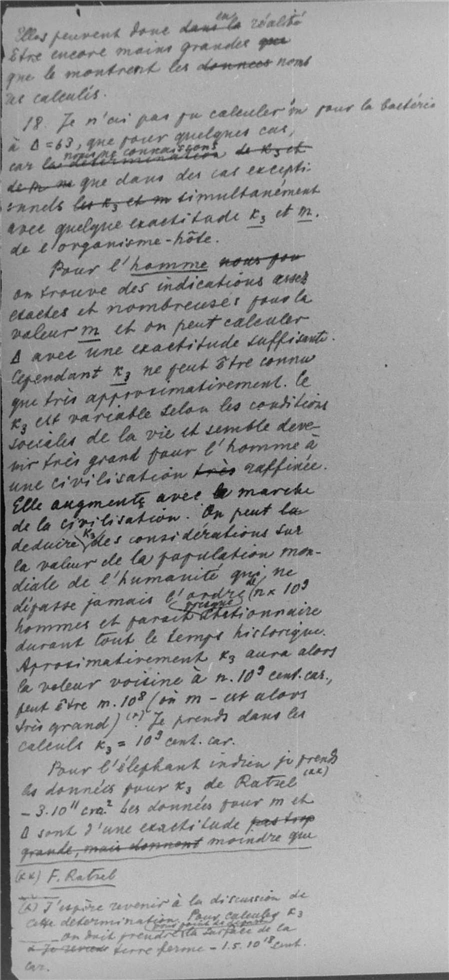 Elles peuvent donc dans la en réalité
être encore moins grandes que
que le montrent les données nous
les calculés.
18. Je n'ai pas pu calculer m pour la bactérie
à Δ = 63, que pour quelques cas,
nous ne connaissons
car la détermination de K₃ et
de m ne que dans des cas excepti-
onnels les K₃ et m simultanément
avec quelque exactitude K₃ et m.
de l'organisme-hôte.
Pour l'homme nous pou
on trouve des indications assez
exactes et nombreuses pour la
valeur m et on peut calculer
Δ avec une exactitude suffisante.
Cependant K₃ ne peut être connu
que très approximativement. Ce
K₃ est variable selon les conditions
sociales de la vie et semble deve-
nir très grand pour l'homme à
une civilisation très raffinée.
Elle augmente avec la marche
de la civilisation. On peut la
K₃
deduire des considérations sur
la valeur de la population mon-
diale de l'humanité qui ne
dépasse jamais l'ordre de (n × 10⁹
presque
hommes et parait stationnaire
durant tout le temps historique.
Aproximativement K₃ aura alors
la valeur voisine à n. 10⁹ cent. car.,
peut être m. 10⁸ (où m - est alors
très grand) (*). Je prends dans les
calculs K₃ = 10⁹ cent. car.
Pour l'éléphant indien je prends
les données pour K₃ de Ratzel (**)
- 3.10¹¹ cm². Les données pour m et
Δ sont d'une exactitude pas trop
grande, mais donnent moindre que
(**) F. Ratzel
(*) J'espère revenir à la discussion de
cette détermination. Pour calculer K₃
on doit prendre la surface de la
terre ferme - 1.5. 10¹⁸ cent.
car.